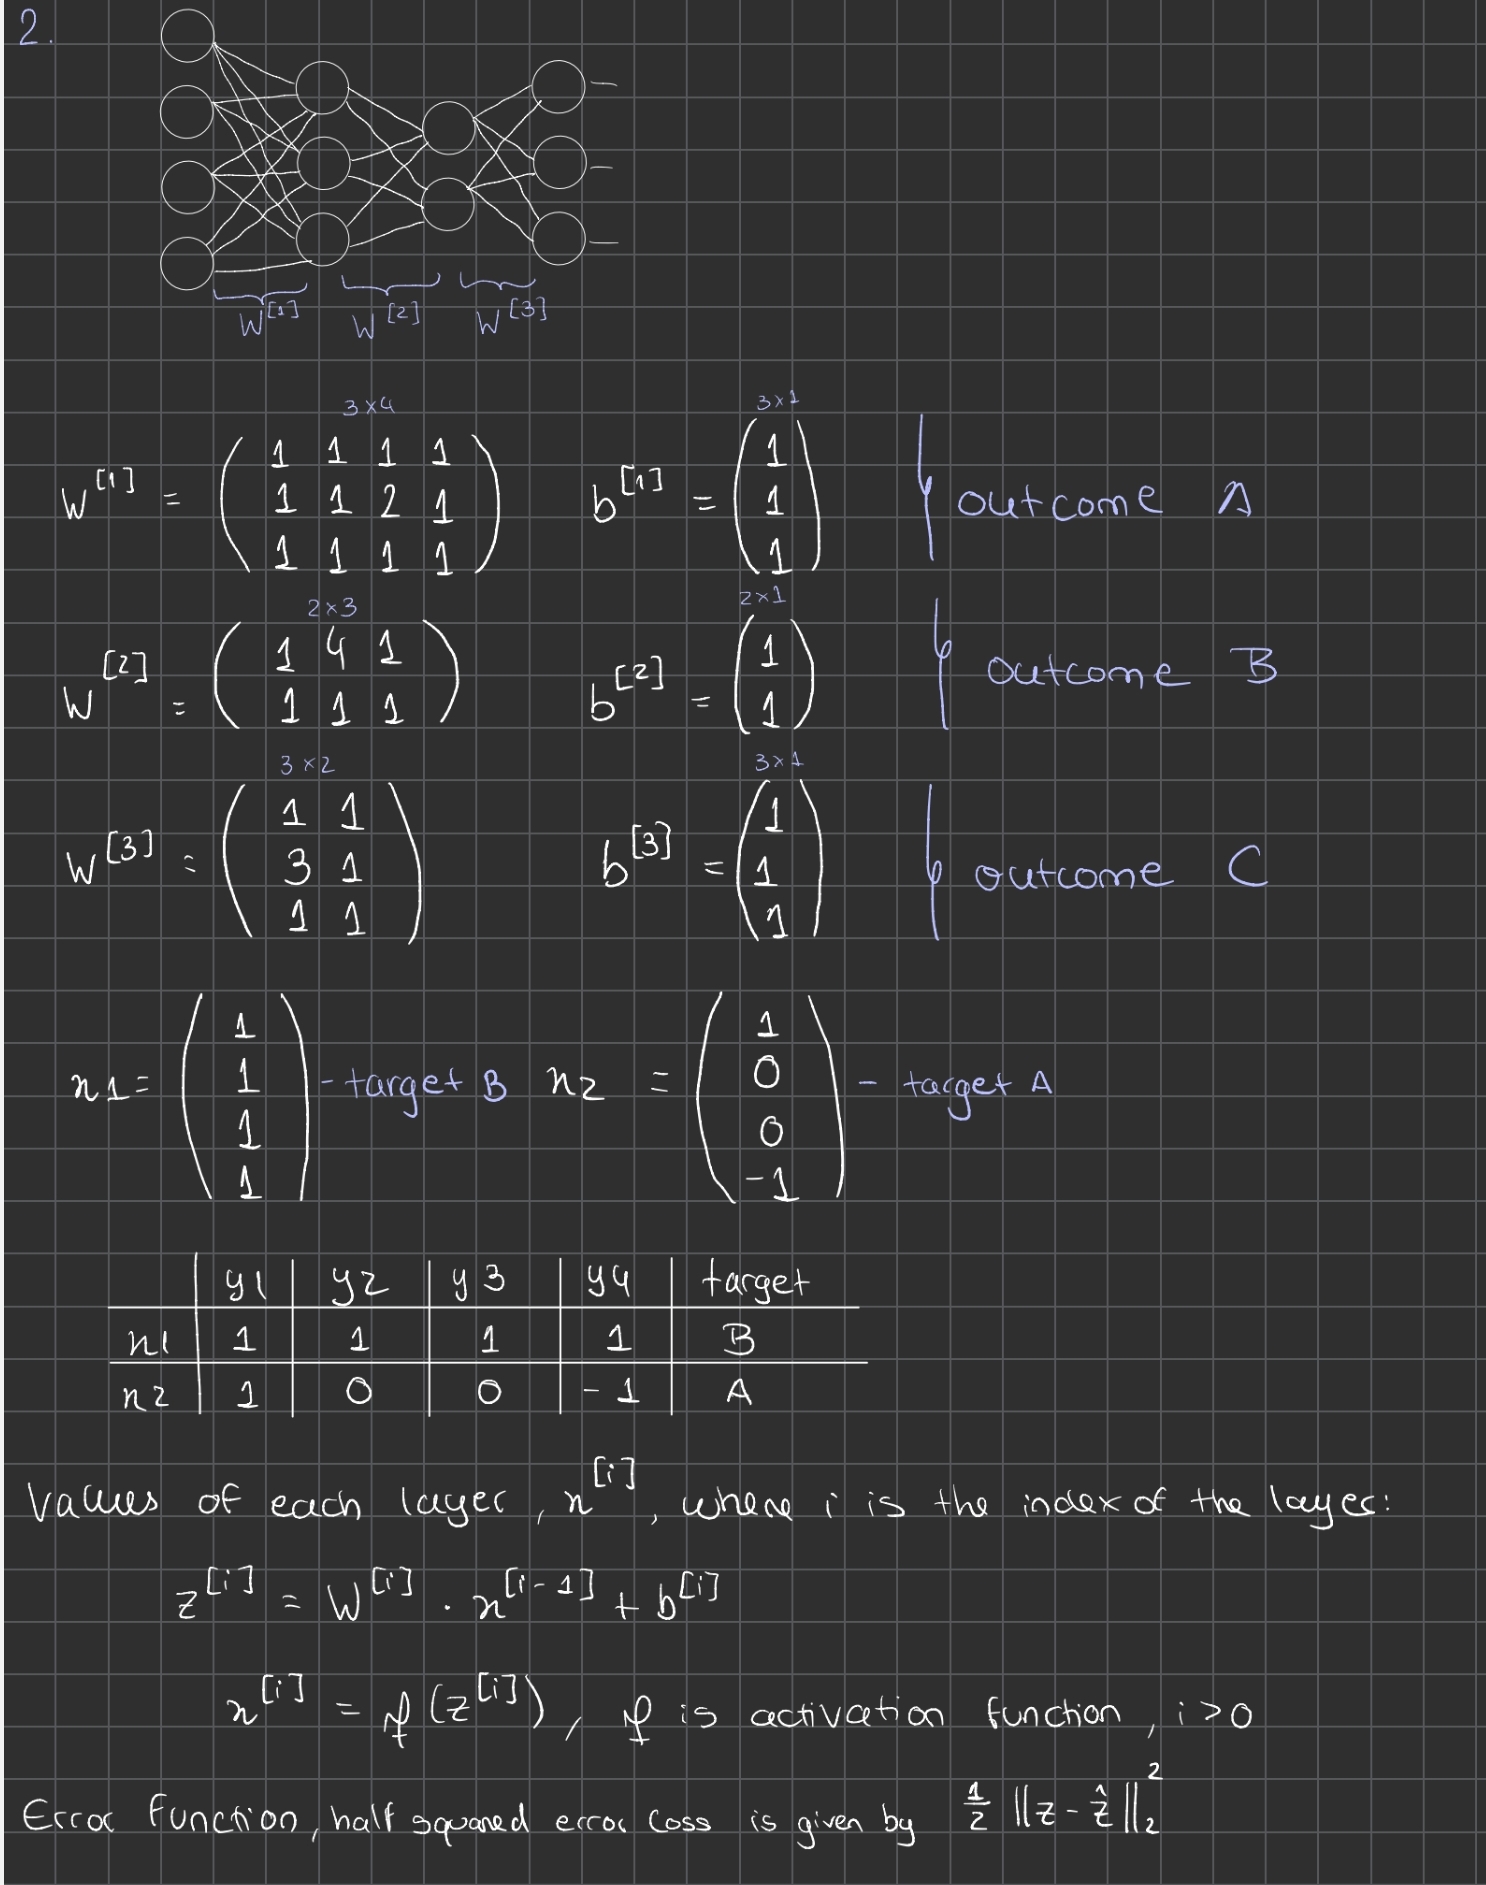 2.
W[1] W[2] W[3]
3x4 3x1
W[1] = ( 1 1 1 1 b[1] = ( 1 outcome A
1 1 2 1 1
1 1 1 1 ) 1 )
2x3 2x1
W[2] = ( 1 4 1 b[2] = ( 1 outcome B
1 1 1 ) 1 )
3x2 3x1
W[3] = ( 1 1 b[3] = ( 1 outcome C
3 1 1
1 1 ) 1 )
x1 = ( 1 - target B x2 = ( 1 - target A
1 0
1 0
1 ) -1 )
y1 y2 y3 y4 target
x1 1 1 1 1 B
x2 1 0 0 -1 A
Values of each layer, x[i], where i is the index of the layer:
z[i] = W[i] . x[i-1] + b[i]
x[i] = f(z[i]), f is activation function, i>0
Error function, half squared error loss is given by 1/2 ||z - ẑ||₂²